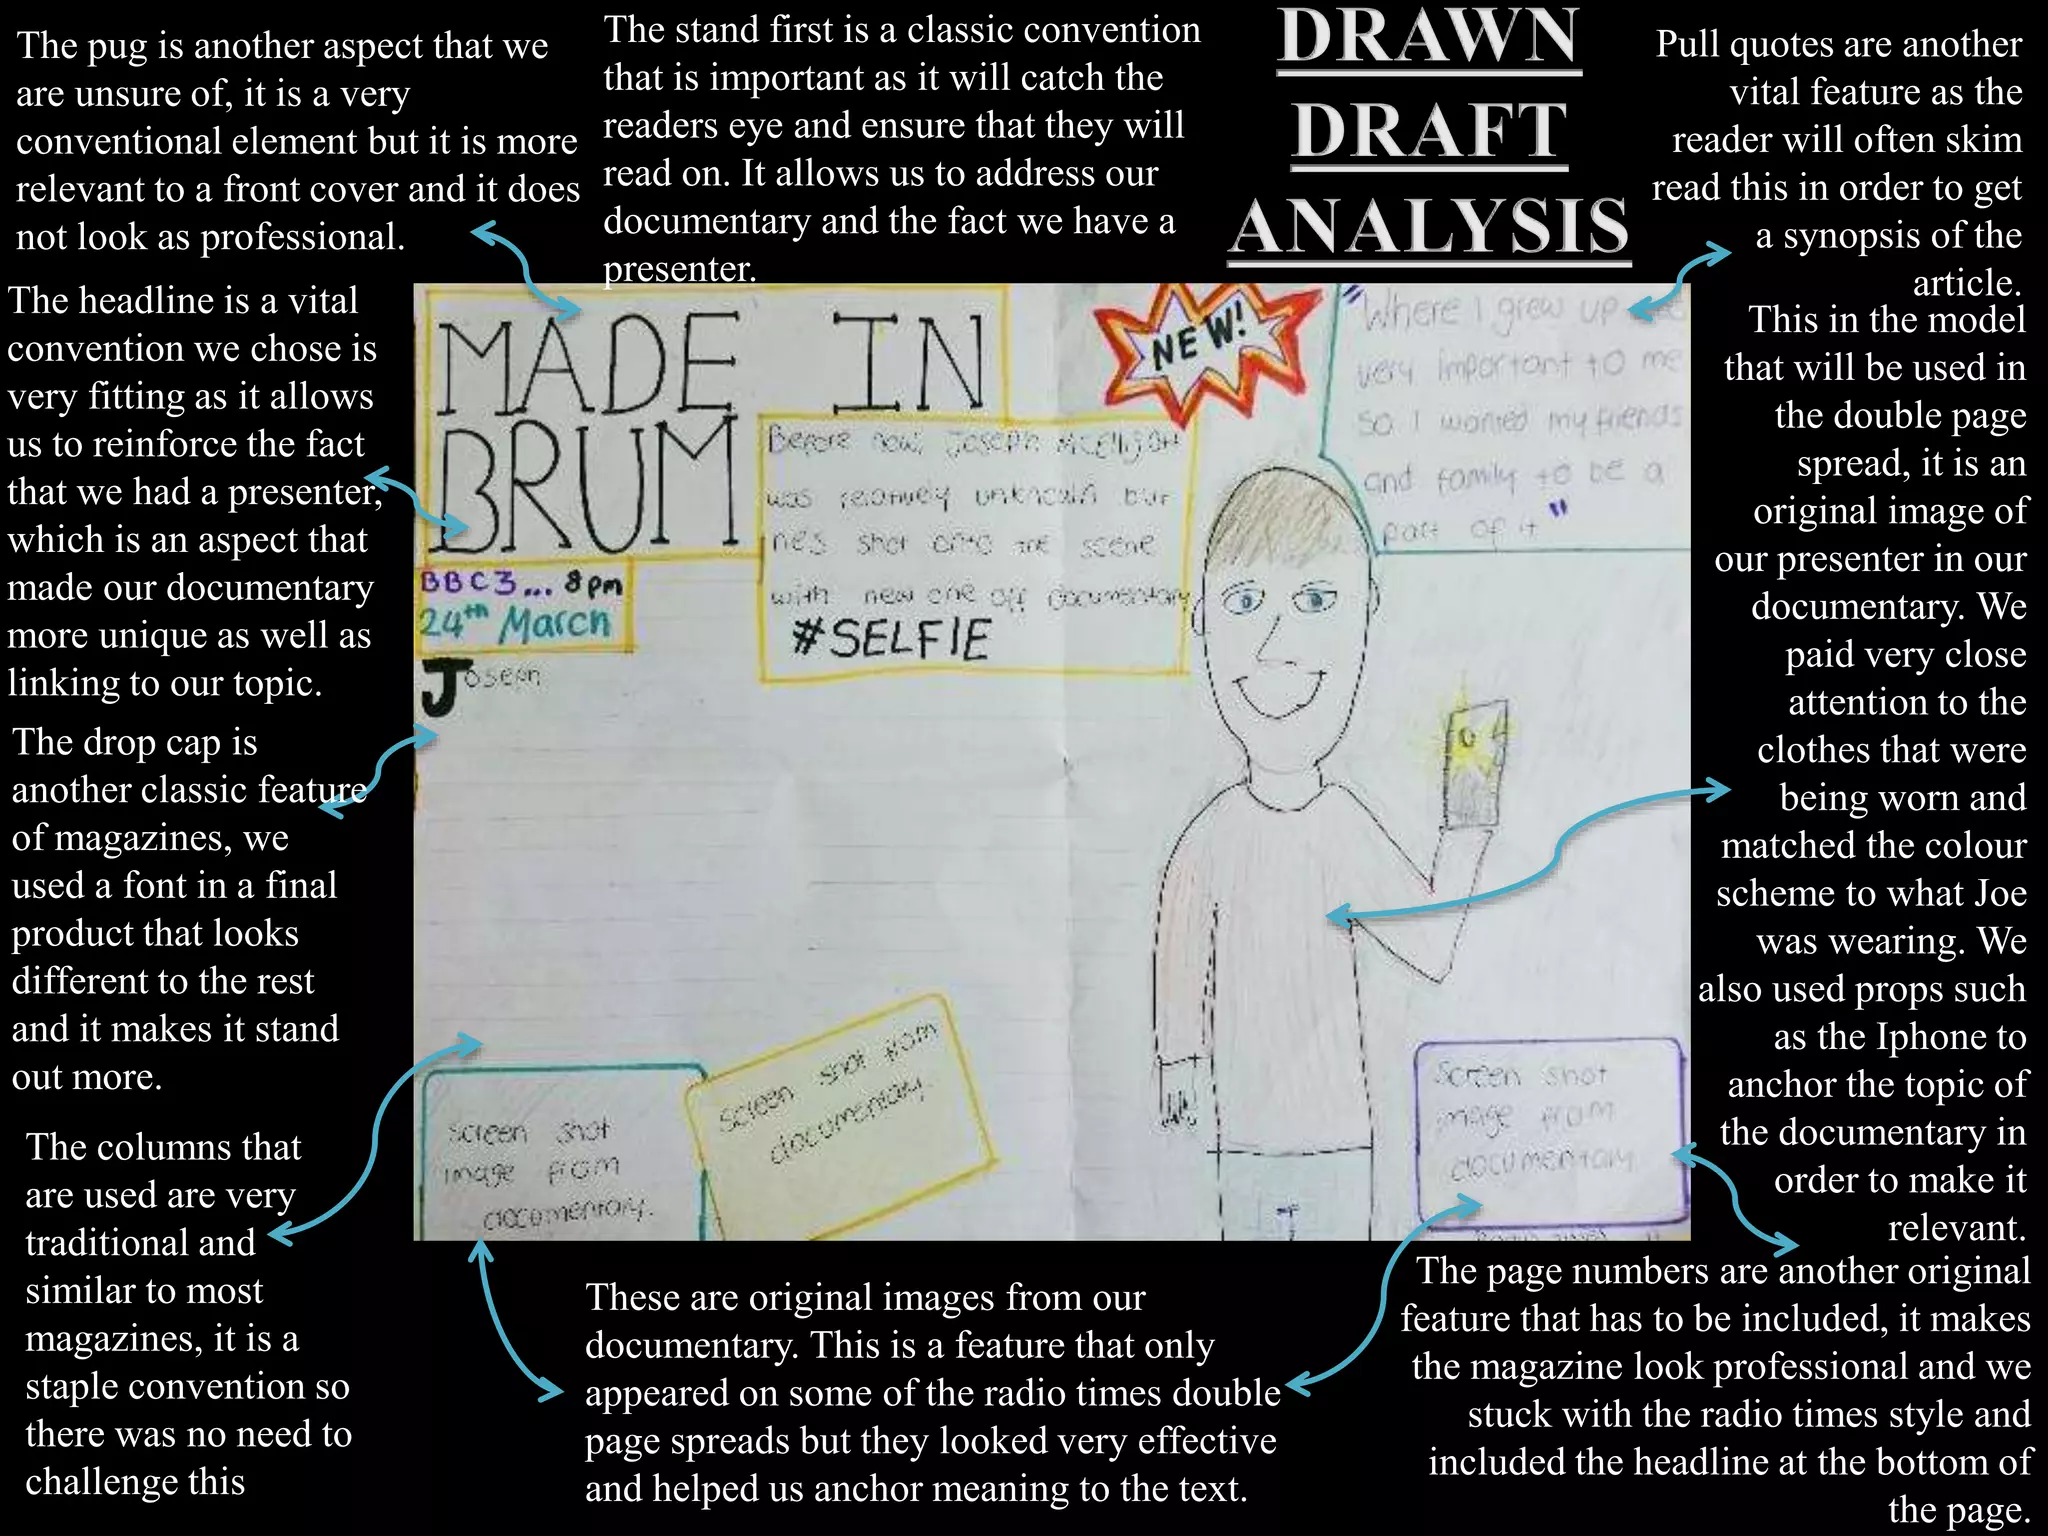 The pug is another aspect that we
are unsure of, it is a very
conventional element but it is more
relevant to a front cover and it does
not look as professional.
The stand first is a classic convention
that is important as it will catch the
readers eye and ensure that they will
read on. It allows us to address our
documentary and the fact we have a
presenter.
DRAWN
DRAFT
ANALYSIS
Pull quotes are another
vital feature as the
reader will often skim
read this in order to get
a synopsis of the
article.
The headline is a vital
convention we chose is
very fitting as it allows
us to reinforce the fact
that we had a presenter,
which is an aspect that
made our documentary
more unique as well as
linking to our topic.
The drop cap is
another classic feature
of magazines, we
used a font in a final
product that looks
different to the rest
and it makes it stand
out more.
The columns that
are used are very
traditional and
similar to most
magazines, it is a
staple convention so
there was no need to
challenge this
MADE IN
BRUM
BBC3... 8pm
24th March
Joseph
Before now, Joseph McElligott
was relatively unknown but
hes shot onto the scene
with new one off documentary
#SELFIE
NEW!
"Where I grew up
very important to me
so I wanted my friends
and family to be a
part of it"
screen shot
image from
documentary.
screen shot from
documentary.
screen shot
image from
documentary
This in the model
that will be used in
the double page
spread, it is an
original image of
our presenter in our
documentary. We
paid very close
attention to the
clothes that were
being worn and
matched the colour
scheme to what Joe
was wearing. We
also used props such
as the Iphone to
anchor the topic of
the documentary in
order to make it
relevant.
These are original images from our
documentary. This is a feature that only
appeared on some of the radio times double
page spreads but they looked very effective
and helped us anchor meaning to the text.
The page numbers are another original
feature that has to be included, it makes
the magazine look professional and we
stuck with the radio times style and
included the headline at the bottom of
the page.